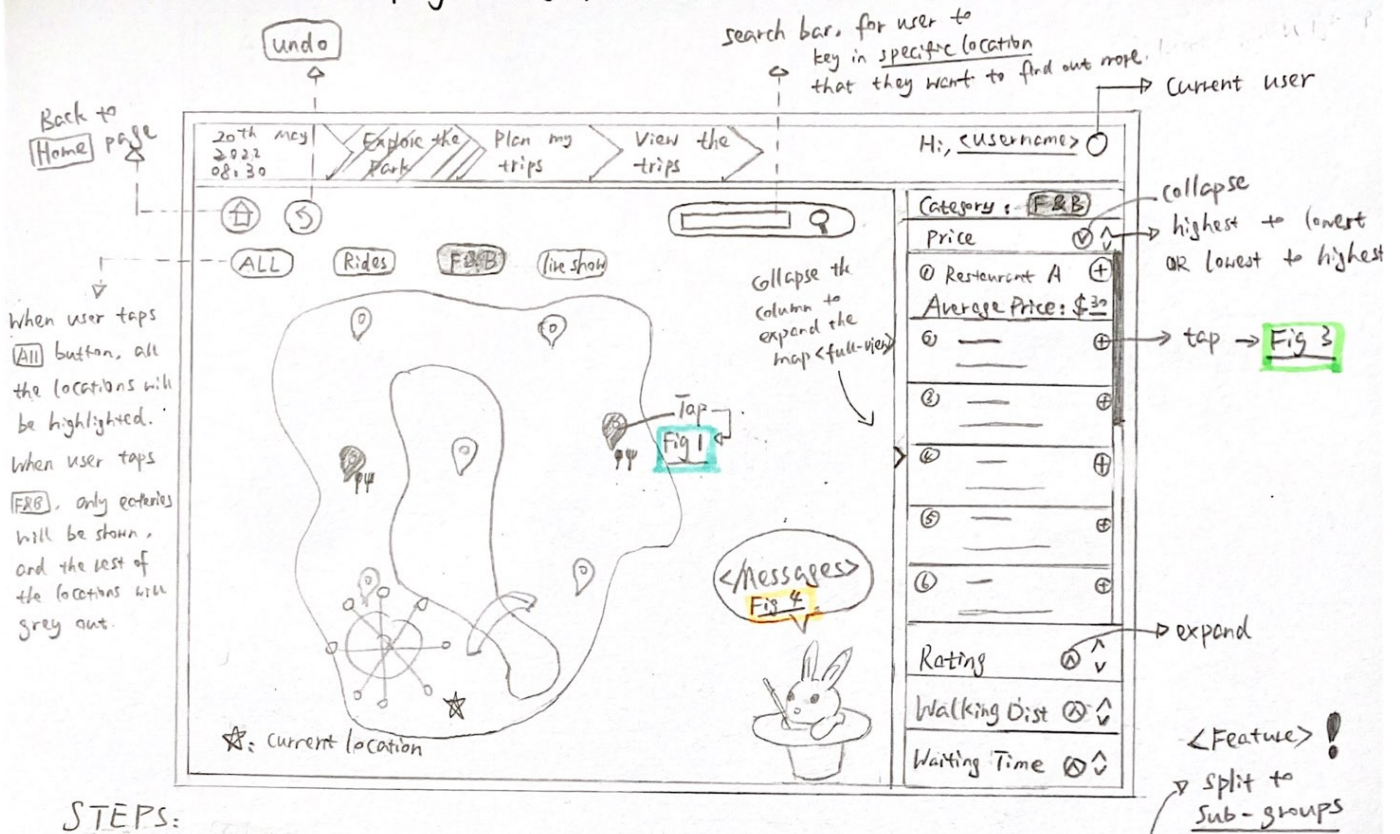 undo
search bar, for user to
key in specific location
that they want to find out more.
Current user
Back to
Home page
20th may
2022
08:30
Explore the
Park
Plan my
trips
View the
trips
Hi, <username>
ALL
Rides
F&B
live show
When user taps
All button, all
the locations will
be highlighted.
When user taps
F&B, only eateries
will be shown,
and the rest of
the locations will
grey out.
Collapse the
column to
expand the
map <full-view>
Tap
Fig 1
</Messages>
Fig 4
☆: Current location
Category: F&B
Price
collapse
highest to lowest
OR lowest to highest
① Restaurant A
Average Price: $30
②
tap → Fig 3
③
④
⑤
⑥
Rating
expand
Walking Dist
Waiting Time
<Feature> !
split to
sub-groups
STEPS: